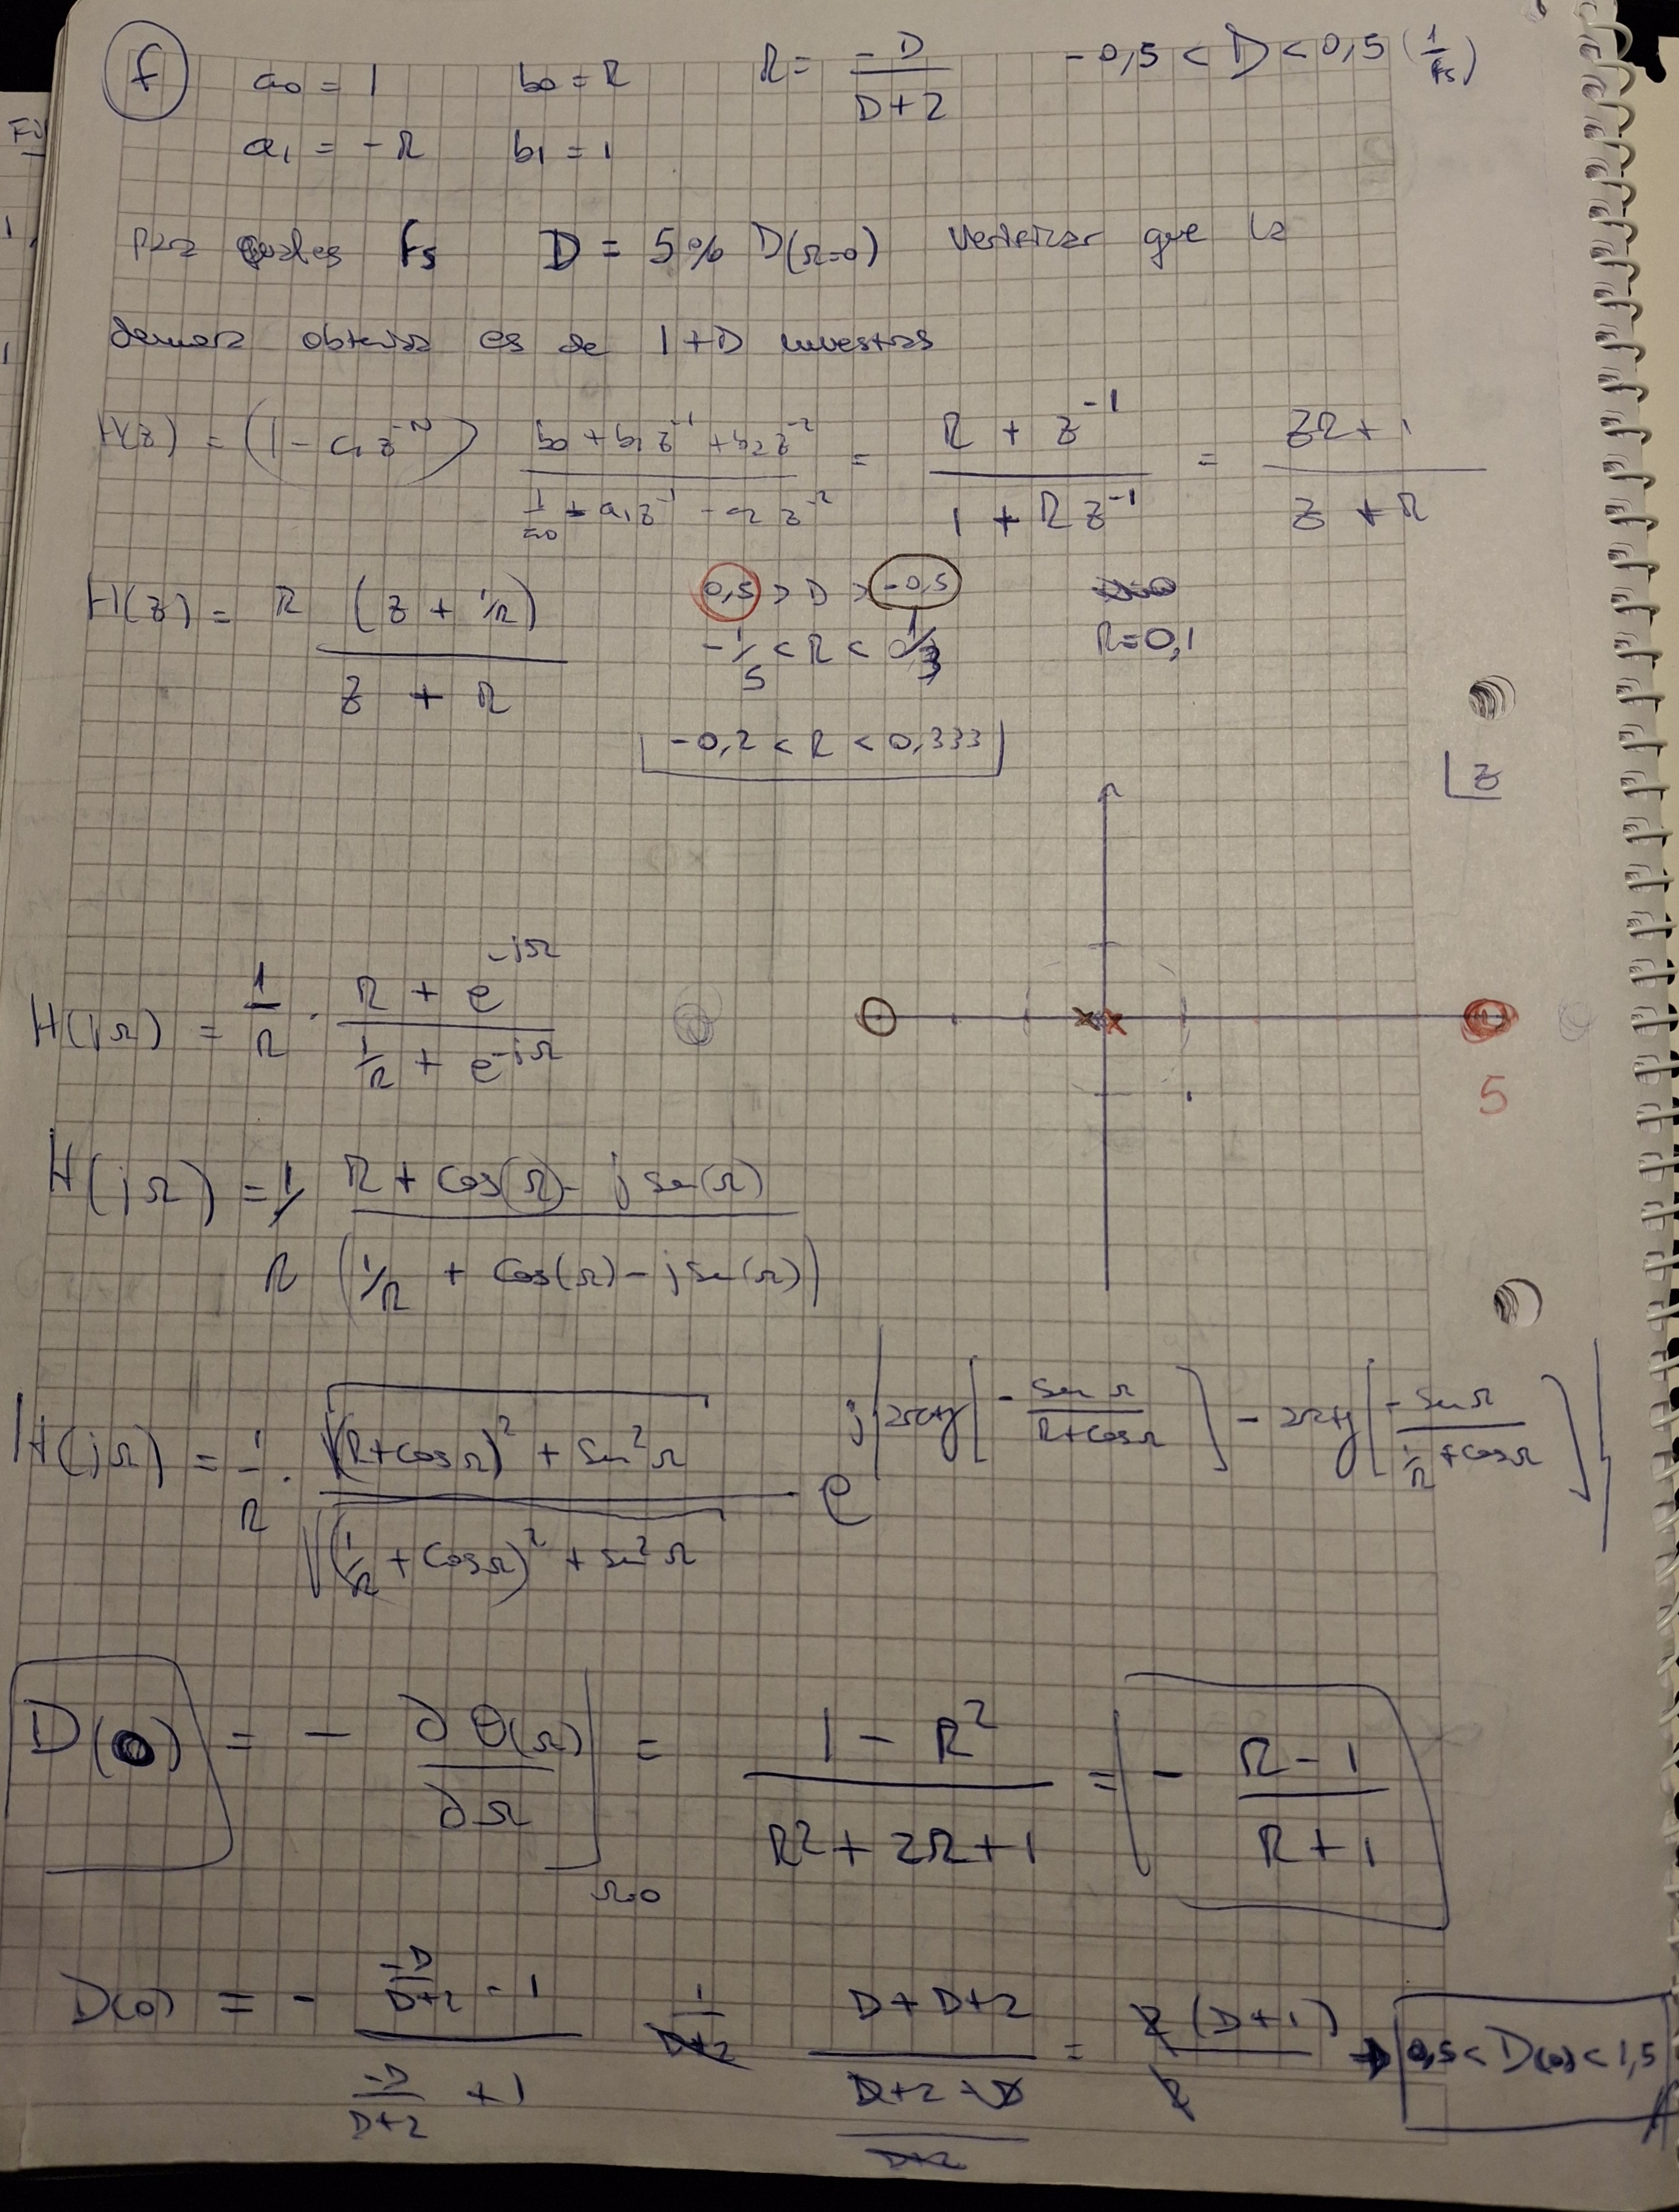 f) a0 = 1 b0 = R R = -D / (D+2) -0,5 < D < 0,5 (1/fs)
a1 = -R b1 = 1
para fs D = 5% D(Ω=0) verificar que la
demora obtenida es de 1+D muestras
H(z) = (1 - c1 z^-N) (b0 + b1 z^-1 + b2 z^-2) / (1/a0 - a1 z^-1 - a2 z^-2) = (R + z^-1) / (1 + R z^-1) = (zR + 1) / (z + R)
H(z) = R (z + 1/R) / (z + R) 0,5 > D > -0,5
-1/5 < R < 1/3 R=0,1
-0,2 < R < 0,333
z
H(jΩ) = 1/R · (R + e^-jΩ) / (1/R + e^-jΩ)
5
H(jΩ) = 1/R (R + cos(Ω) - j sen(Ω)) / (1/R + cos(Ω) - j sen(Ω))
H(jΩ) = 1/R · √((R+cosΩ)² + sen²Ω) / √((1/R + cosΩ)² + sen²Ω) e^j{arctg[-senΩ / (R+cosΩ)] - arctg[-senΩ / (1/R + cosΩ)]}
D(0) = - ∂θ(Ω) / ∂Ω |Ω=0 = (1 - R²) / (R² + 2R + 1) = - (R - 1) / (R + 1)
D(0) = - (-D/(D+2) - 1) / (-D/(D+2) + 1) (D + D + 2) / (D + 2 - D) = 2(D+1) / 2 → 0,5 < D(0) < 1,5